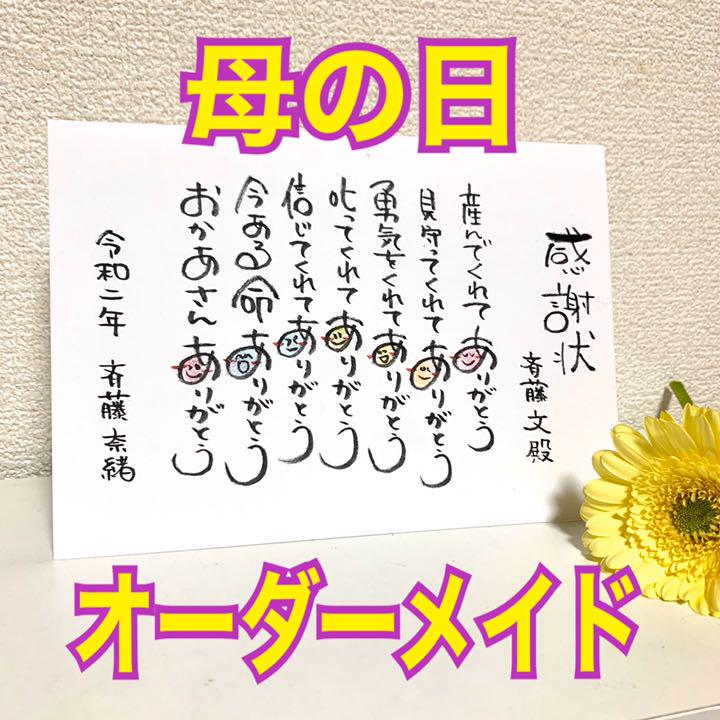 母の日
感謝状
斉藤文殿
産んでくれてありがとう
見守ってくれてありがとう
勇気をくれてありがとう
叱ってくれてありがとう
信じてくれてありがとう
今ある命ありがとう
おかあさんありがとう
令和二年 斉藤奈緒
オーダーメイド